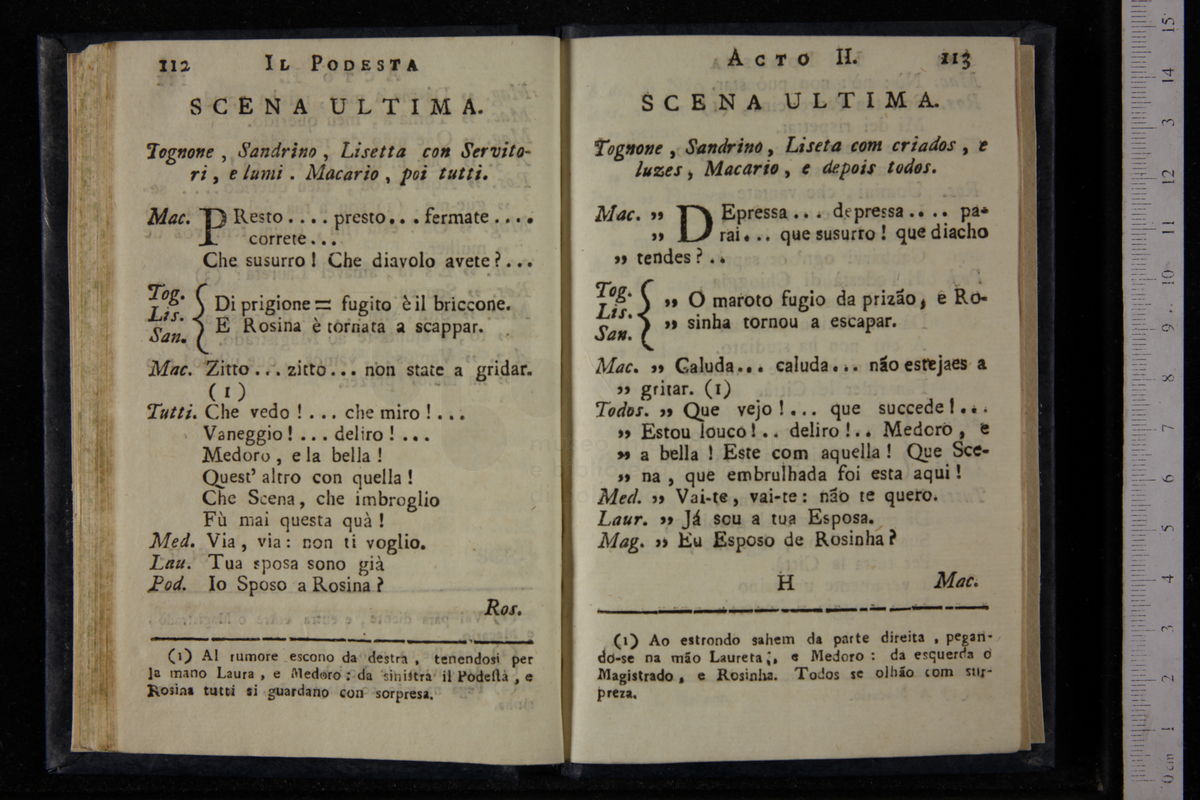 112 IL PODESTA
SCENA ULTIMA.
Tognone, Sandrino, Lisetta con Servito-
ri, e lumi. Macario, poi tutti.
Mac. PResto.... presto... fermate....
correte...
Che susurro! Che diavolo avete?...
Tog.
Lis.
San.
Di prigione = fugito è il briccone.
E Rosina è tornata a scappar.
Mac. Zitto... zitto... non state a gridar.
(1)
Tutti. Che vedo!... che miro!...
Vaneggio!... deliro!...
Medoro, e la bella!
Quest' altro con quella!
Che Scena, che imbroglio
Fù mai questa quà!
Med. Via, via: non ti voglio.
Lau. Tua sposa sono già
Pod. Io Sposo a Rosina?
Ros.
(1) Al rumore escono da destra, tenendosi per
la mano Laura, e Medoro: da sinistra il Podestà, e
Rosina tutti si guardano con sorpresa.
ACTO II. 113
SCENA ULTIMA.
Tognone, Sandrino, Liseta com criados, e
luzes, Macario, e depois todos.
Mac. ,, DEpressa... depressa.... pa-
,, rai... que susurro! que diacho
,, tendes?..
Tog.
Lis.
San.
,, O maroto fugio da prizão, e Ro-
,, sinha tornou a escapar.
Mac. ,, Caluda... caluda... não estejaes a
,, gritar. (1)
Todos. ,, Que vejo!... que succede!...
,, Estou louco!.. deliro!.. Medoro, e
,, a bella! Este com aquella! Que Sce-
,, na, que embrulhada foi esta aqui!
Med. ,, Vai-te, vai-te: não te quero.
Laur. ,, Já sou a tua Esposa.
Mag. ,, Eu Esposo de Rosinha?
H Mac.
(1) Ao estrondo sahem da parte direita, pegan-
do-se na mão Laureta;, e Medoro: da esquerda o
Magistrado, e Rosinha. Todos se olhão com sur-
preza.